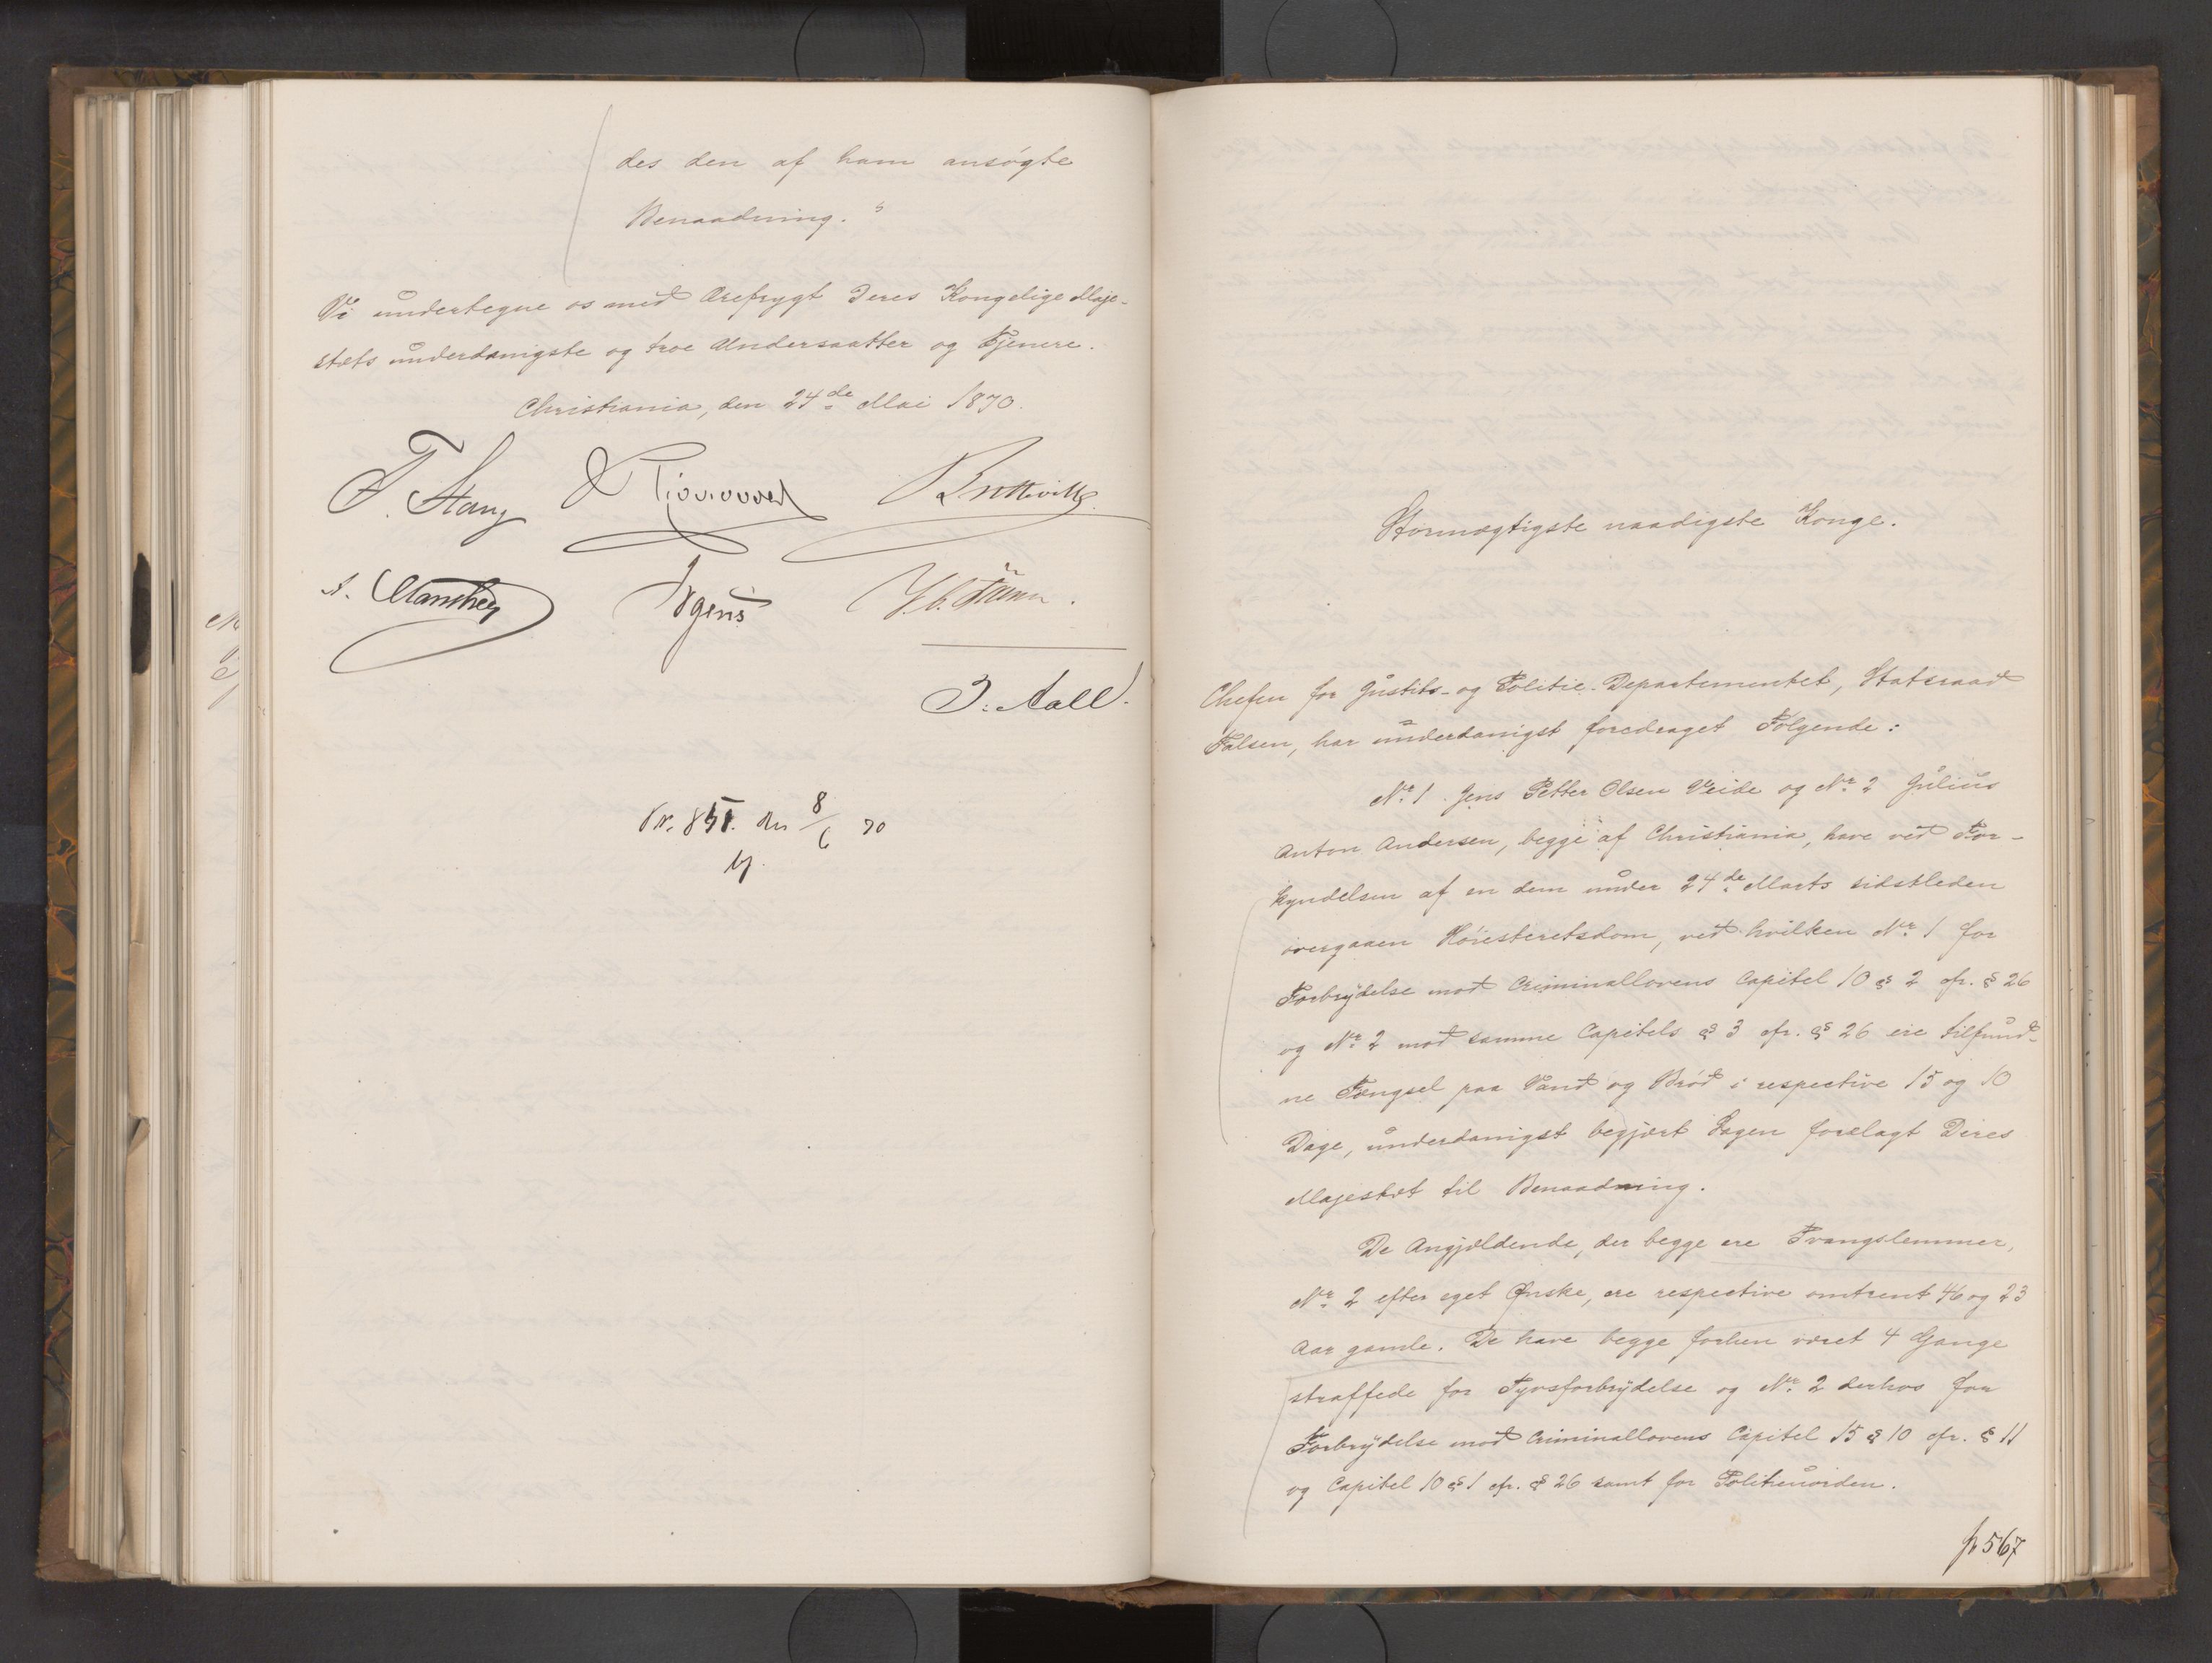 des den af ham ansøgte
Benaadning."
Vi undertegne os med Ærefrygt Deres Kongelige Maje-
stæts underdanigste og troe Undersaatter og Tjenere.
Christiania, den 24de Mai 1870.
F. Stang
Bretteville
A. Manthey
Irgens
J. Aall.
8/6 70
Stormægtigste naadigste Konge.
Chefen for Justits- og Politie-Departementet, Statsraad
Falsen, har underdanigst foredraget Følgende:
Nr. 1 Jens Petter Olsen Veide og Nr. 2 Julius
Anton Andersen, begge af Christiania, have ved For-
kyndelsen af en dem under 24de Marts sidstleden
overgaaen Høiesteretsdom, ved hvilken Nr. 1 for
Forbrydelse mod Criminallovens Capitel 10 § 2 cfr. § 26
og Nr. 2 mod samme Capitels § 3 cfr. § 26 ere tilfund-
ne Fængsel paa Vand og Brød i respective 15 og 10
Dage, underdanigst begjært Sagen forelagt Deres
Majestæt til Benaadning.
De Angjældende, der begge ere Tvangslemmer,
Nr. 2 efter eget Ønske, ere respective omtrent 46 og 23
Aar gamle. De have begge forhen været 4 Gange
straffede for Tyvsforbrydelse og Nr. 2 derhos for
Forbrydelse mod Criminallovens Capitel 15 § 10 cfr. § 11
og Capitel 10 § 1 cfr. § 26 samt for Politieuorden.
567